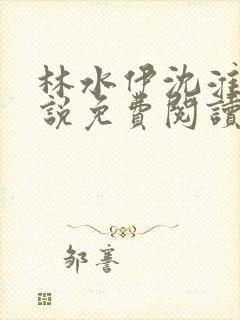 林水伊沈淮
說免費閱讀
鄒謇